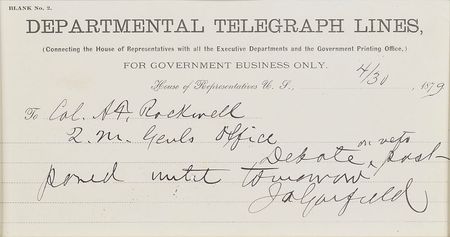 BLANK No. 2.
DEPARTMENTAL TELEGRAPH LINES,
(Connecting the House of Representatives with all the Executive Departments and the Government Printing Office,)
FOR GOVERNMENT BUSINESS ONLY.
House of Representatives U. S., 4/30, 1879
To Col. A F. Rockwell
Q. M. Genls Office
Debate on veto post-
poned until tomorrow
J A Garfield